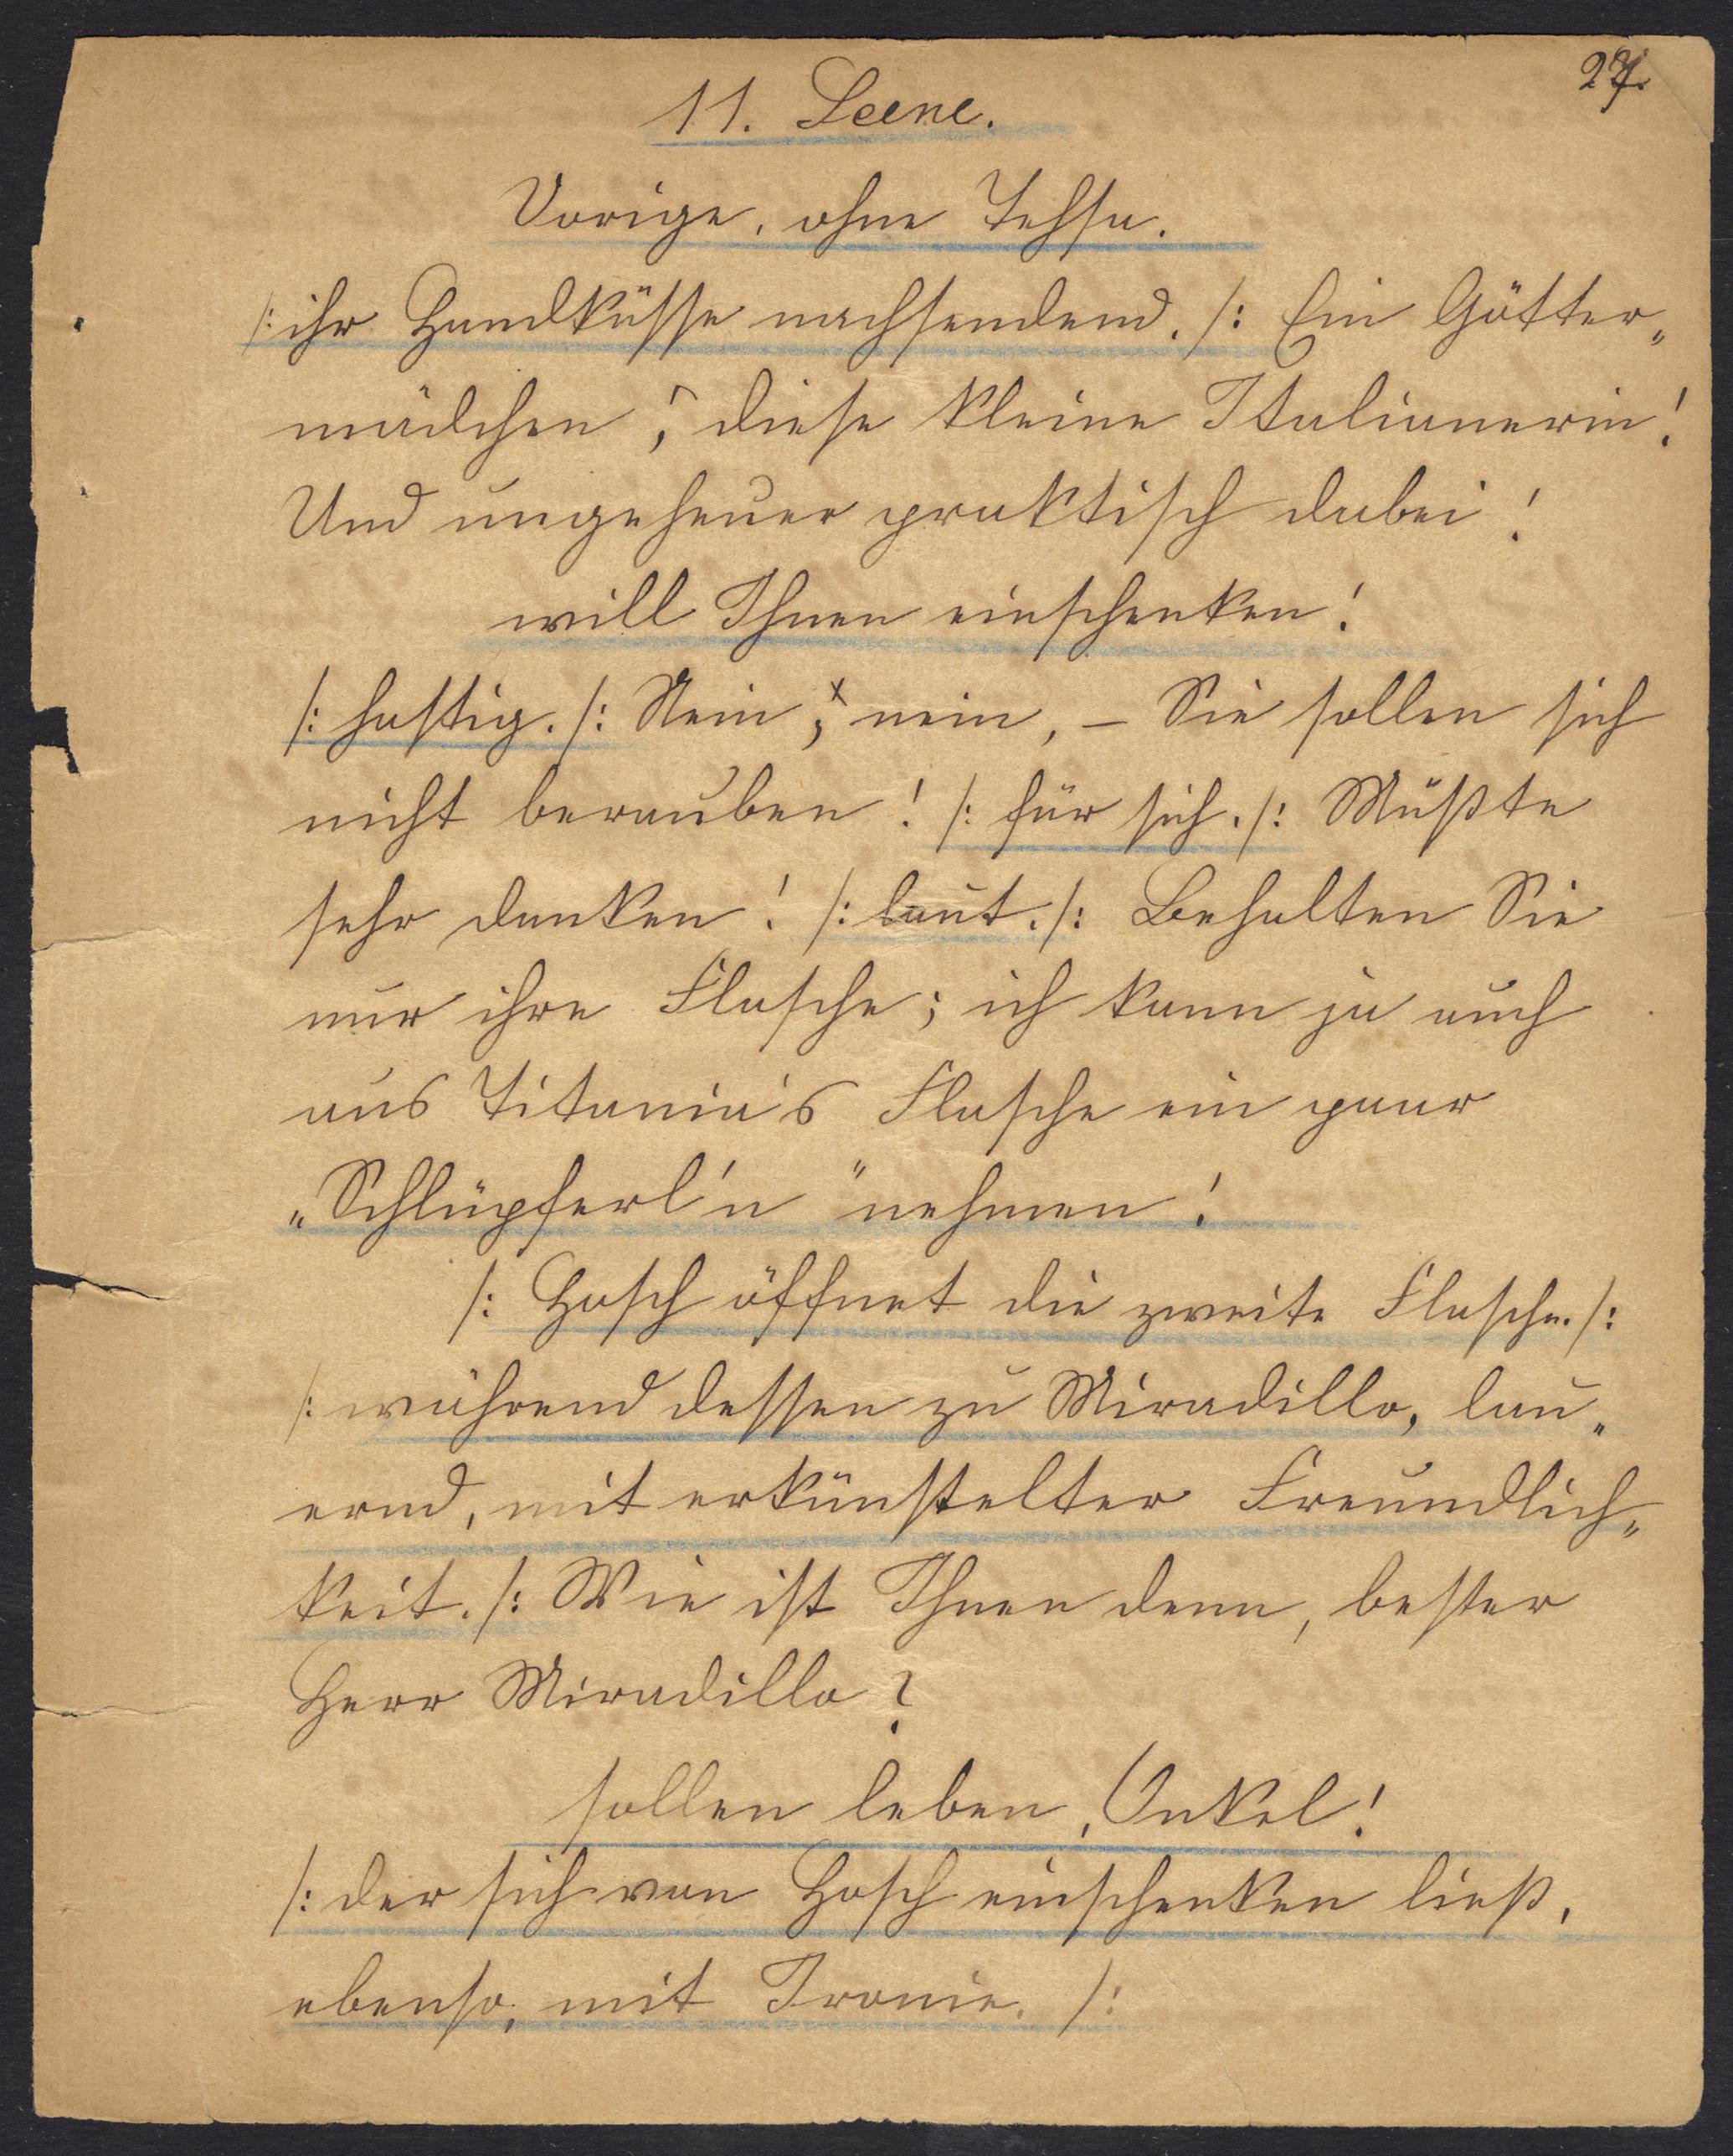 27.
11. Scene.
Vorige, ohne Tessa.
/: ihr Handküsse nachsendend. /: Ein Götter„
mädchen, diese kleine Italianerin!
Und ungeheuer praktisch dabei!
will Ihnen einschenken!
/: hastig. /: Nein, nein, – Sie sollen sich
nicht berauben! /: für sich. /: Müßte
sehr danken! /: laut. /: Behalten Sie
nur ihre Flasche; ich kann ja auch
aus Titania's Flasche ein paar
„Schlüpferl'n" nehmen!
/: Hosch öffnet die zweite Flasche. /:
/: während dessen zu Miradillo, lau„
ernd, mit erkünstelter Freundlich„
keit. /: Wie ist Ihnen denn, bester
Herr Miradillo?
sollen leben, Onkel!
/: der sich von Hosch einschenken ließ,
ebenso, mit Ironie. /: